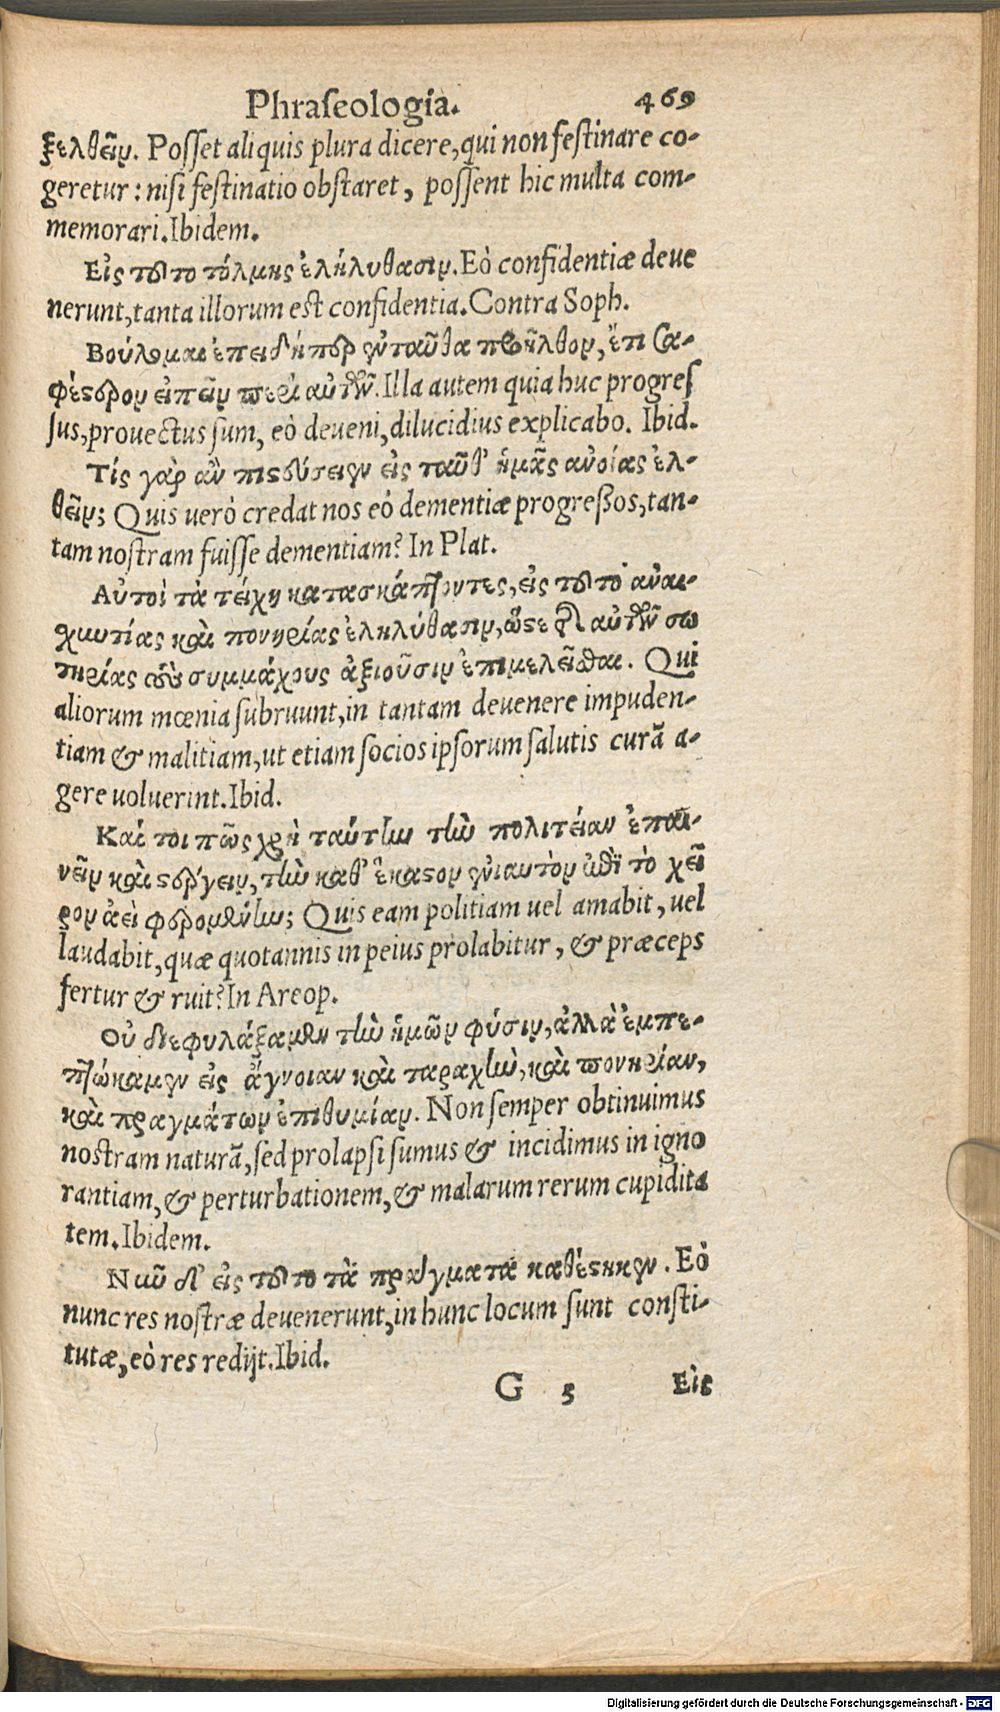 Phraſeologia. 469
ξελθεῖν. Poſſet aliquis plura dicere, qui non feſtinare co-
geretur: niſi feſtinatio obſtaret, poſſent hic multa com-
memorari. Ibidem.
Εἰς τοῦτο τόλμης ἐληλύθασιν. Eò confidentiæ deue
nerunt, tanta illorum eſt confidentia. Contra Soph.
Βούλομαι ἐπειδήπερ ἐνταῦθα προῆλθον, ἔτι σα-
φέστερον εἰπεῖν περὶ αὐτῶν. Illa autem quia huc progreſ
ſus, prouectus ſum, eò deueni, dilucidius explicabo. Ibid.
Τίς γὰρ ἂν πιστεύσειεν εἰς ταῦθ' ἡμᾶς ἀνοίας ἐλ-
θεῖν; Quis uerò credat nos eò dementiæ progreßos, tan-
tam noſtram fuiſſe dementiam? In Plat.
Αὐτοὶ τὰ τείχη κατασκάπτοντες, εἰς τοῦτο ἀναι-
σχυντίας καὶ πονηρίας ἐληλύθασιν, ὥστε καὶ αὐτῶν σω
τηρίας τοὺς συμμάχους ἀξιοῦσιν ἐπιμελεῖσθαι. Qui
aliorum mœnia ſubruunt, in tantam deuenere impuden-
tiam & malitiam, ut etiam ſocios ipſorum ſalutis curã a-
gere uoluerint. Ibid.
Καί τοι πῶς χρὴ ταύτην τὴν πολιτείαν ἐπαι-
νεῖν καὶ στέργειν, τὴν καθ' ἕκαστον ἐνιαυτὸν ἐπὶ τὸ χεῖ
ρον ἀεὶ φερομένην; Quis eam politiam uel amabit, uel
laudabit, quæ quotannis in peius prolabitur, & præceps
fertur & ruit? In Areop.
Οὐ διεφυλάξαμεν τὴν ἡμῶν φύσιν, ἀλλὰ ἐμπε-
πτώκαμεν εἰς ἄγνοιαν καὶ ταραχὴν, καὶ πονηρίαν,
καὶ πραγμάτων ἐπιθυμίαν. Non ſemper obtinuimus
noſtram naturã, ſed prolapſi ſumus & incidimus in igno
rantiam, & perturbationem, & malarum rerum cupidita
tem. Ibidem.
Νῦν δ' εἰς τοῦτο τὰ πράγματα καθέστηκεν. Eò
nunc res noſtræ deuenerunt, in hunc locum ſunt conſti-
tutæ, eò res redijt. Ibid.
G 5 Εἰς
Digitalisierung gefördert durch die Deutsche Forschungsgemeinschaft - DFG